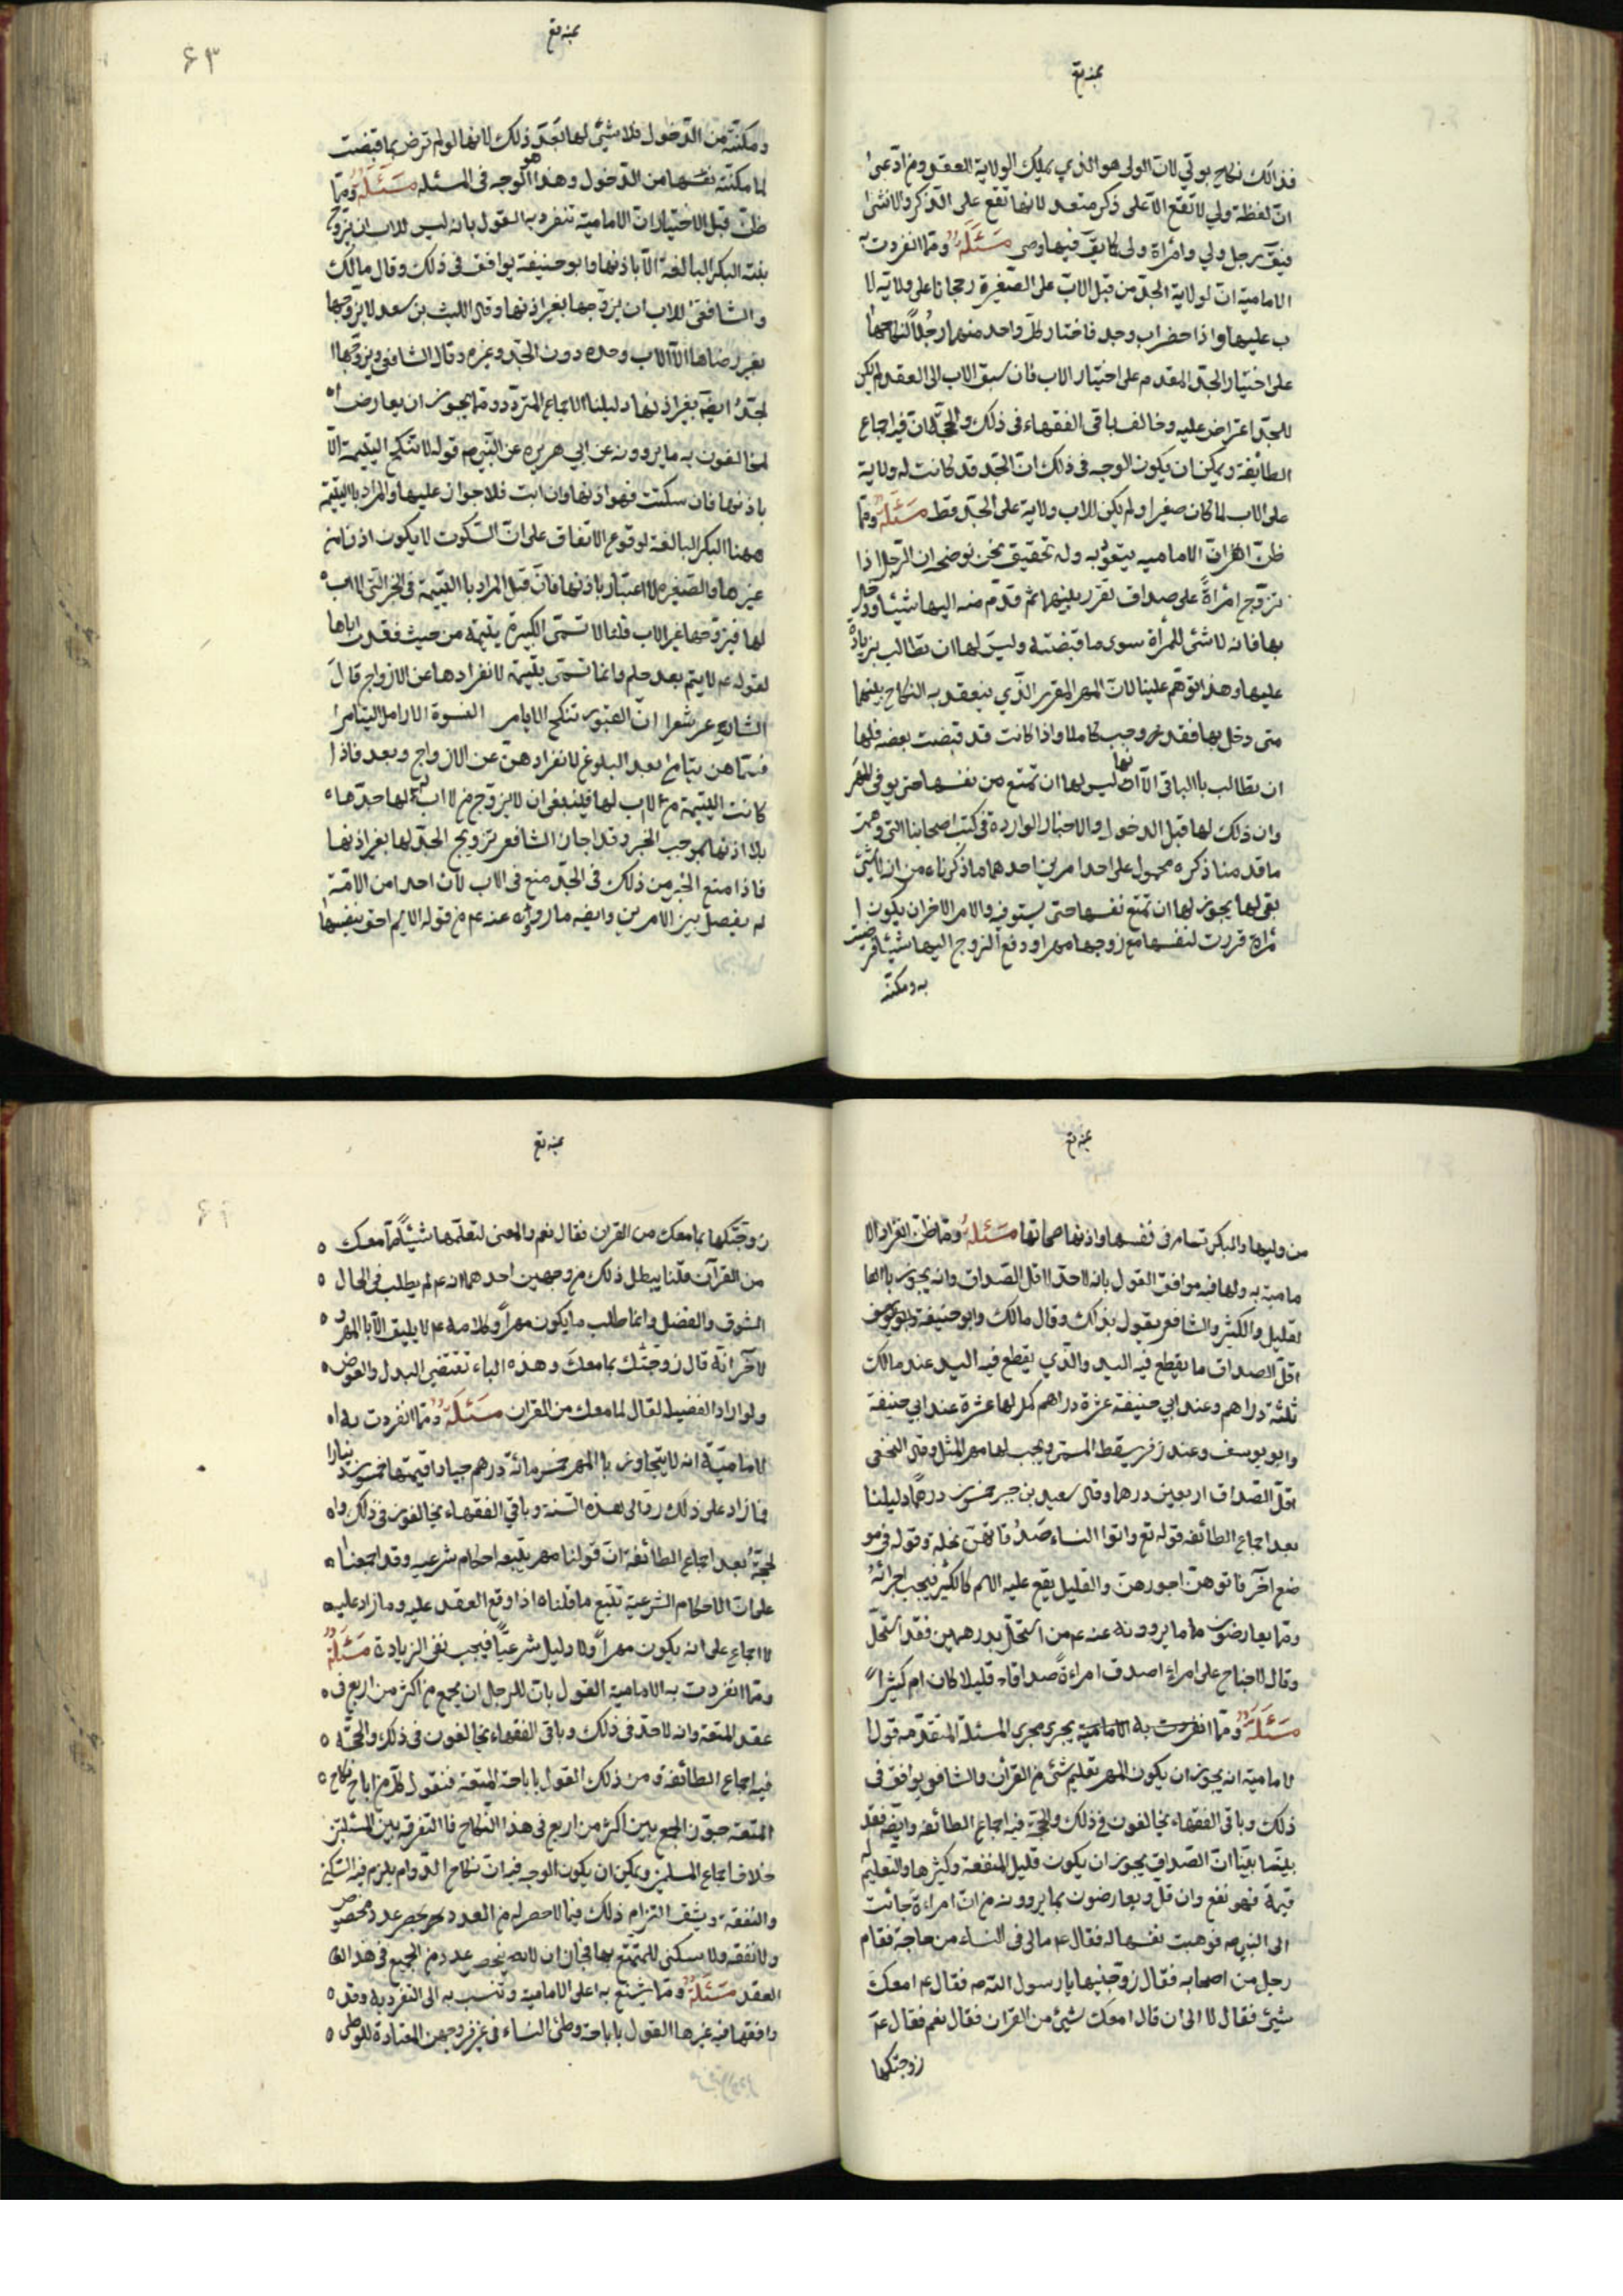 فذلك نكاح بولي لان الولى هو الذي يملك الولاية العقد ومن ادعى
ان لفظة ولي لا تقع الا على ذكر متعد لانها تقع على الذكر والانثى
فيق رجل ولي وامرأة ولى كما يق فيها وصى مسئلة ومما انفردت به
الامامية ان لولاية الجد من قبل الاب على الصغيرة رجحانا على ولاية لا
ب عليها واذا حضر اب وجد فاختار كل واحد منهما رجلا لنكاحها
على اختيار الجد المقدم على اختيار الاب فان سبق الاب الى العقد لم يكن
للجد اعتراض عليه وخالف باقى الفقهاء فى ذلك والحجة لان فيه اجماع
الطايفة ويمكن ان يكون الوجه فى ذلك ان الجد قد كانت له ولاية
على الاب لما كان صغيرا ولم يكن للاب ولاية على الجد قط مسئلة ومما
ظن انفراد الاماميه به وله تحقيق نحن نوضحه ان الرجل اذا
تزوج امرأة على صداق تقرر بينهما ثم قدم منه اليها شيئا ودخل
بها فانه لا شئ للمرأة سوى ما قبضته وليس لها ان تطالب بزيادة
عليها وهذا توهم علينا لان المهر المقرر الذي ينعقد به النكاح بينهما
متى دخل بها فقد وجب كاملا واذا كانت قد قبضت بعضه فلها
ان تطالب بالباقى الا انها ليس لها ان تمتنع من نفسها حتى يوفى المهر
وان ذلك لها قبل الدخول والاخبار الواردة فى كتب اصحابنا التى وهمت
ما قدمنا ذكره محمول على احد امرين احدهما ما ذكرناه من انه لا شئ
بقى لها يجوز لها ان تمنع نفسها حتى يستوفيه والامر الاخر ان يكون ا
مرأة قررت لنفسها مع زوجها مهرا ودفع الزوج اليها شيئا فرضيت
به ومكنته
۶۳
ومكنته من الدخول فلا شئ لها بعد ذلك لانها لو لم ترض بما قبضت
لما مكنته نفسها من الدخول وهذا هو الوجه فى المسئله مسئلة ومما
ظن قبل الاختيار ان الامامية تنفرد به القول بانه ليس للاب ان يزوج
بنته البكر البالغة الا باذنها وابو حنيفة يوافق فى ذلك وقال مالك
والشافعى للاب ان يزوجها بغير اذنها وقال الليث بن سعد لا يزوجها
بغير رضاها الا الاب وحده دون الجد وغيره وقال الشافى ويزوجها ا
لجد ايضا بغير اذنها دليلنا الاجماع المتردد ومما يجوز ان يعارض ا
لمخالفون به ما يروونه عن ابي هريره عن النبي ص قوله لا تنكح اليتيمة الا
باذنها فان سكتت فهو اذنها وان ابت فلا جواز عليها والمراد باليتيمة
ههنا البكر البالغة لوقوع الاتفاق على ان السكوت لا يكون اذنا من
غيرها والصغيرة لا اعتبار باذنها فان قيل المراد باليتيمة فى الخبر التى لا اب
لها فيزوجها غير الاب قلنا لا تسمى الكبيرة يتيمة من حيث فقدت اباها
لقوله ع لا يتم بعد حلم وانما تسمى يتيمة لانفرادها عن الازواج قال
الشاعر شعرا ان القبور تنكح الايامى النسوة الارامل اليتامى
فسماهن يتامى بعد البلوغ لانفرادهن عن الازواج وبعد فاذا
كانت اليتيمة من لا اب لها فينبغى ان لا يزوج من لا اب لها جدها
بلا اذنها بموجب الخبر وقد اجاز الشافعى تزويج الجد لها بغير اذنها
فاذا منع الخبر من ذلك فى الجد منع فى الاب لان احدا من الامة
لم يفصل بين الامرين وايضا ما رووه عنه ع من قوله الايم احق بنفسها
من وليها والبكر تستامر فى نفسها واذنها صماتها مسئلة ومما ظن انفراد الا
مامية به ولها فيه موافق القول بانه لا حد لاقل الصداق وانه يجوز بالـ
لقليل والكثير والشافعى يقول بذلك وقال مالك وابو حنيفة وابو يوسف
اقل الصداق ما يقطع فيه اليد والذي يقطع فيه اليد عند مالك
ثلثة دراهم وعند ابي حنيفة عشرة دراهم كمل لها عشرة عند ابي حنيفة
وابو يوسف وعند زفر يسقط المسمى ويجب لها مهر المثل وقال النخعى
اقل الصداق اربعين درهما وقال سعيد بن جبير خمسون درهما دليلنا
بعد اجماع الطائفه قوله تع واتوا النساء صدقاتهن نحلة وقوله فى مو
ضع آخر فاتوهن اجورهن والقليل يقع عليه الاسم كالكثير فيجب اجزائه
ومما يعارضون ما يروونه عنه ع من استحل بدرهمين فقد استحل
وقال لا جناح على امرئ اصدق امراءة صداقا قليلا كان ام كثيرا
مسئلة ومما انفردت به الامامية يجرى مجرى المسئلة المتقدمه قول ا
لامامية انه يجوز ان يكون المهر تعليم شئ من القرآن والشافعى يوافق فى
ذلك وباقى الفقهاء يخالفون فى ذلك والحجة فيه اجماع الطائفه وايضا فقد
بينا ان الصداق يجوز ان يكون قليل المنفعة وكثيرها والتعليم له
قيمة فهو نفع وان قل ويعارضون بما يروونه من ان امراءة جائت
الى النبى ص فوهبت نفسها له فقال ع مالى فى النساء من حاجة فقام
رجل من اصحابه فقال زوجنيها يا رسول الله ص فقال ع امعك
شيئ فقال لا الى ان قال امعك شيئ من القران فقال نعم فقال ع
زوجتكها
زوجتكها بما معك من القران فقال نعم والمعنى لتعلمها شيئا مما معك
من القرآن قلنا يبطل ذلك من وجهين احدهما انه ع لم يطلب فى الحال
الشرف والفضل وانما طلب ما يكون مهرا وكلامه ع لا يليق الا بالمهر و
لاخر انه قال زوجتك بما معك وهذه الباء تقتضى البدل والعوض
ولو اراد الفضيلة لقال لما معك من القران مسئلة ومما انفردت به ا
لاماميّة انه لا يتجاوز بالمهر خمسمائة درهم جيادا قيمتها خمسون دينارا
فما زاد على ذلك رد الى هذه السنة وباقى الفقهاء يخالفون فى ذلك وا
لحجة بعد اجماع الطائفة ان قولنا مهر يتبعه احكام شرعيه وقد اجمعنا
على ان الاحكام الشرعية تتبع ما قلناه اذا وقع العقد عليه وما زاد عليه
لا اجماع على انه يكون مهرا ولا دليل شرعيا فيجب نفى الزيادة مسئلة
ومما انفردت به الامامية القول بان للرجل ان يجمع من اكثر من اربع فى
عقد المتعة وانه لا حد فى ذلك وباقى الفقهاء يخالفون فى ذلك والحجة
فيه اجماع الطائفة ومن ذلك القول باباحة المتعة فنقول كل من اباح نكاح
المتعة جوز الجمع بين اكثر من اربع فى هذا النكاح فالتفرقه بين المسئلتين
خلاف اجماع المسلمين ويمكن ان يكون الوجه فيه ان نكاح الدوام يلزم فيه السكنى
والنفقة ويشق التزام ذلك فيما لا حصر له من العدد فحصر بعدد مخصوص
ولا نفقه ولا سكنى للمتمتع بها فجاز ان لا ينحصر عدد من الجمع فى هذا
العقد مسئلة ومما يشنع به على الامامية وتنسب به الى التفرد به وقد
وافقها فيه غيرها القول باباحة وطئ النساء فى غير فروجهن المعتادة للوطى